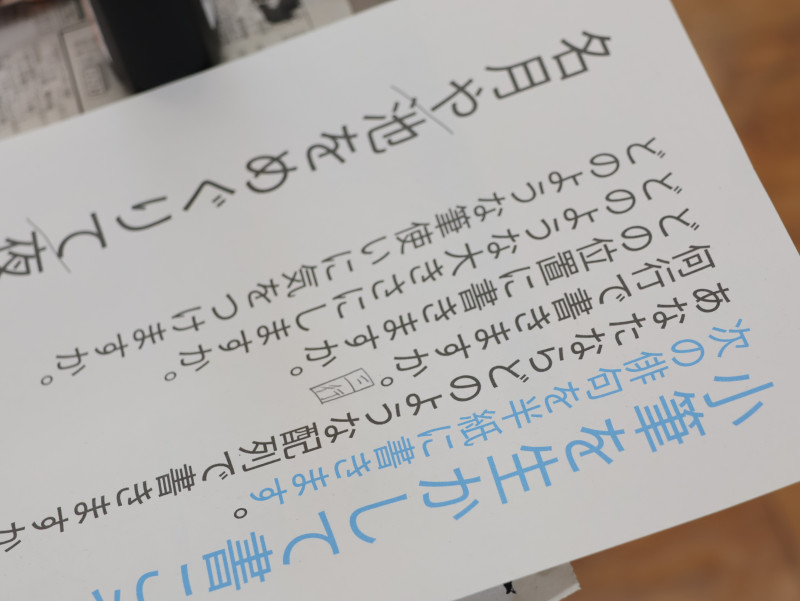 小筆を生かして書こ
次の俳句を半紙に書きます。
あなたならどのような配列で書きますか
何行で書きますか。三行
どの位置に書きますか。
どのような大きさにしますか。
どのような筆使いに気をつけますか。
名月や池をめぐりて夜